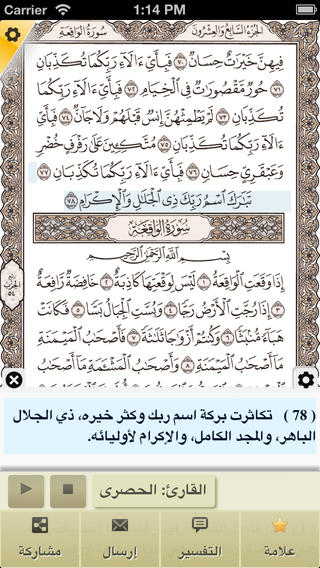 Carrier 1:14 PM
سُورَةُ الوَاقِعَةِ الجُزْءُ السَّابِعُ وَالعِشْرُونَ
فِيهِنَّ خَيْرَٰتٌ حِسَانٌ ۝٧٠ فَبِأَيِّ ءَالَآءِ رَبِّكُمَا تُكَذِّبَانِ
۝٧١ حُورٌ مَّقْصُورَٰتٌ فِي ٱلْخِيَامِ ۝٧٢ فَبِأَيِّ ءَالَآءِ رَبِّكُمَا
تُكَذِّبَانِ ۝٧٣ لَمْ يَطْمِثْهُنَّ إِنسٌ قَبْلَهُمْ وَلَا جَآنٌّ ۝٧٤ فَبِأَيِّ
ءَالَآءِ رَبِّكُمَا تُكَذِّبَانِ ۝٧٥ مُتَّكِـِٔينَ عَلَىٰ رَفْرَفٍ خُضْرٍ
وَعَبْقَرِيٍّ حِسَانٍ ۝٧٦ فَبِأَيِّ ءَالَآءِ رَبِّكُمَا تُكَذِّبَانِ ۝٧٧
تَبَٰرَكَ ٱسْمُ رَبِّكَ ذِي ٱلْجَلَٰلِ وَٱلْإِكْرَامِ ۝٧٨
سُورَةُ الوَاقِعَةِ
بِسْمِ ٱللَّهِ ٱلرَّحْمَٰنِ ٱلرَّحِيمِ
إِذَا وَقَعَتِ ٱلْوَاقِعَةُ ۝١ لَيْسَ لِوَقْعَتِهَا كَاذِبَةٌ ۝٢ خَافِضَةٌ رَّافِعَةٌ
۝٣ إِذَا رُجَّتِ ٱلْأَرْضُ رَجًّا ۝٤ وَبُسَّتِ ٱلْجِبَالُ بَسًّا ۝٥ فَكَانَتْ
هَبَآءً مُّنۢبَثًّا ۝٦ وَكُنتُمْ أَزْوَٰجًا ثَلَٰثَةً ۝٧ فَأَصْحَٰبُ ٱلْمَيْمَنَةِ
مَآ أَصْحَٰبُ ٱلْمَيْمَنَةِ ۝٨ وَأَصْحَٰبُ ٱلْمَشْـَٔمَةِ مَآ أَصْحَٰبُ
( 78 ) تكاثرت بركة اسم ربك وكثر خيره، ذي الجلال
الباهر، والمجد الكامل، والإكرام لأوليائه.
القارئ: الحصرى
علامة التفسير إرسال مشاركة